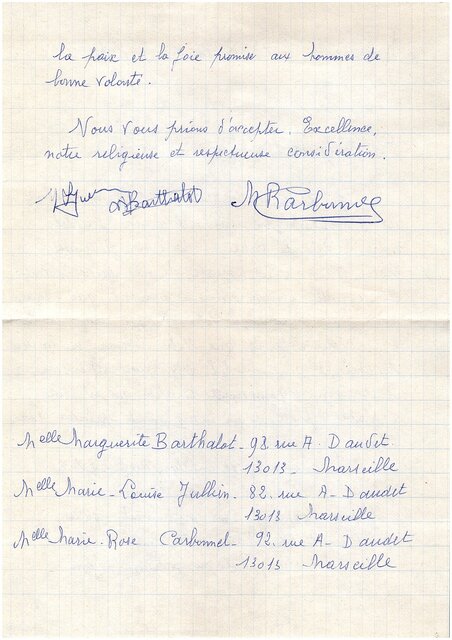 la paix et la joie promise aux hommes de
bonne volonté.
Nous vous prions d'accepter, Excellence,
notre religieuse et respectueuse considération.
MBarthalot MRCarbonnel
Melle Marguerite Barthalot - 98 rue A. Daudet.
13013 - Marseille
Melle Marie-Louise Jullien. 82. rue A-Daudet
13013 Marseille
Melle Marie-Rose Carbonnel - 92. rue A-Daudet
13013 Marseille